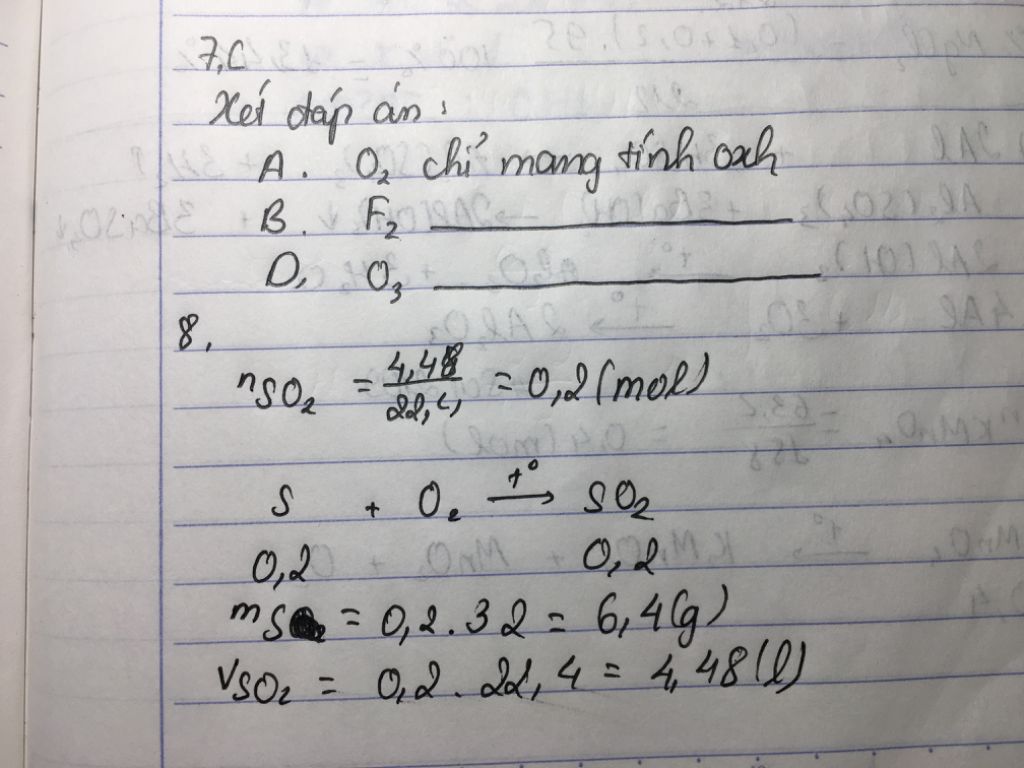 7, C
Xét đáp án:
A. O₂ chỉ mang tính oxh
B. F₂ ________
D, O₃ ________
8,
nSO₂ = 4,48/22,4 = 0,2 (mol)
S + O₂ →(t°) SO₂
0,2 0,2
mS = 0,2.32 = 6,4(g)
VSO₂ = 0,2.22,4 = 4,48(l)